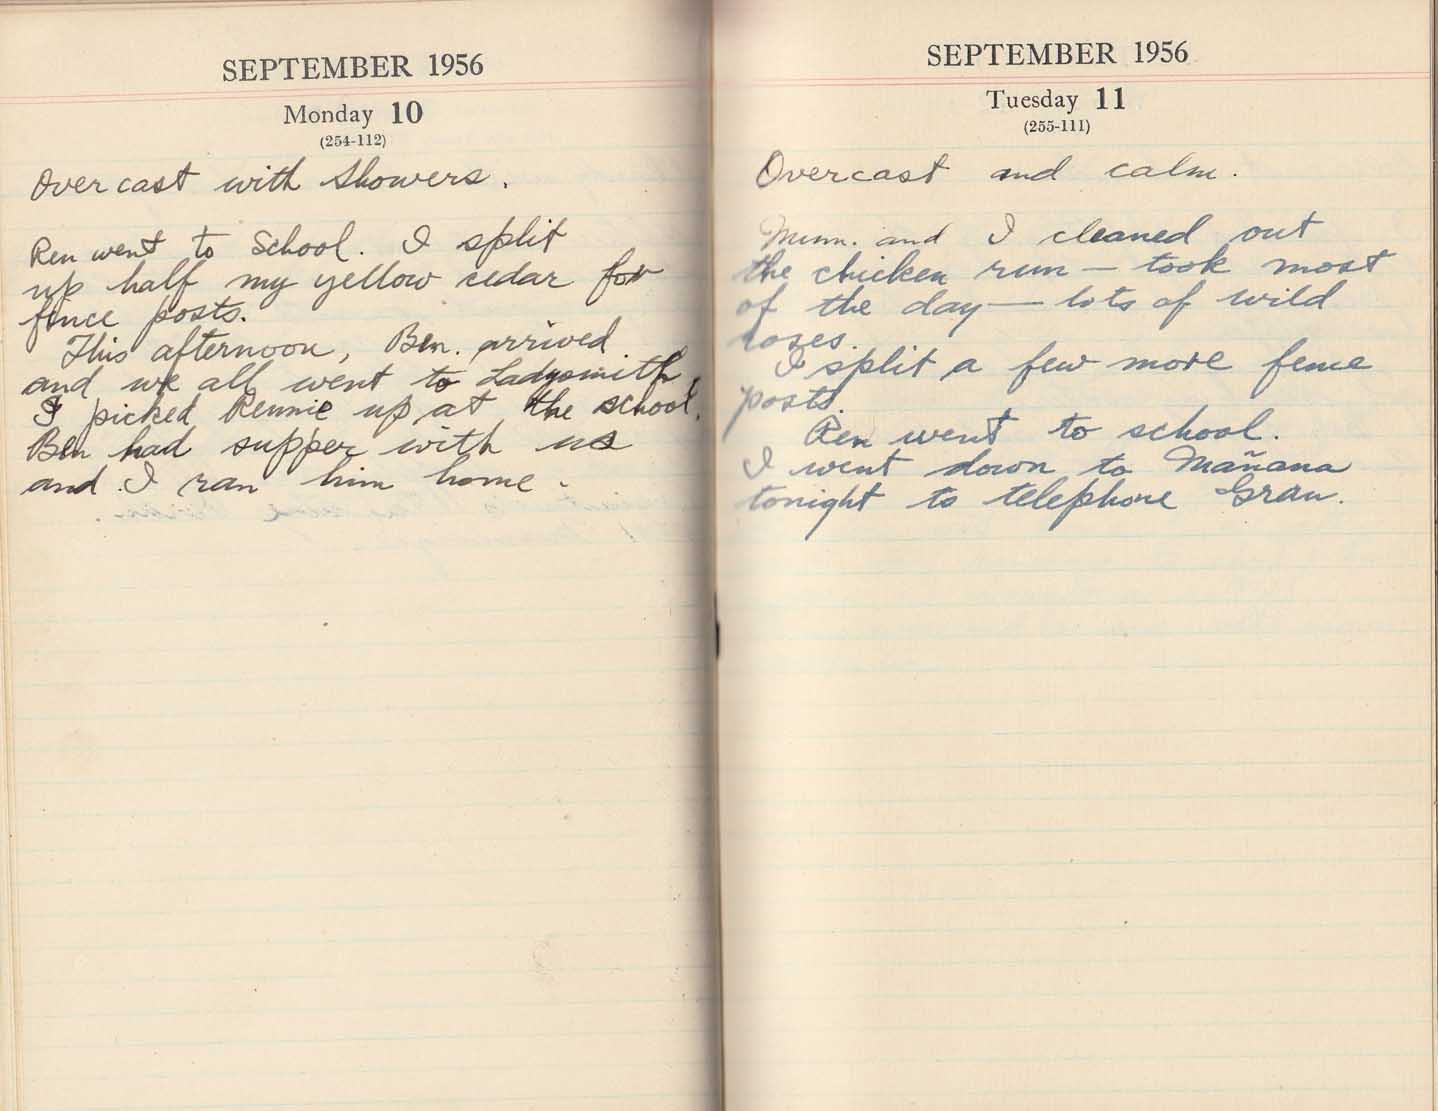 SEPTEMBER 1956
Monday 10
(254-112)
Overcast with showers.
Ren went to School. I split
up half my yellow cedar for
fence posts.
This afternoon, Ben. arrived
and we all went to Ladysmith
I picked Rennie up at the school.
Ben had supper with us
and I ran him home.
SEPTEMBER 1956
Tuesday 11
(255-111)
Overcast and calm.
Mum. and I cleaned out
the chicken run — took most
of the day — lots of wild
roses.
I split a few more fence
posts.
Ren went to school.
I went down to Mañana
tonight to telephone Gran.